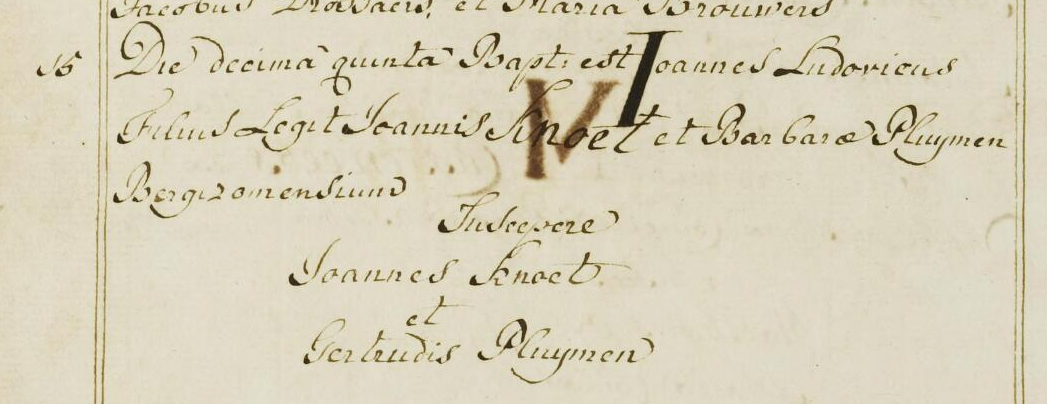 Jacobus Drossaers, et Maria Brouwers
15 Die decimâ quintâ Bapt: est Joannes Ludovicus
Filius Legit Joannis Knoet et Barbaræ Pluymen
Bergizomensium
Suscepere
Joannes Knoet
et
Gertrudis Pluymen